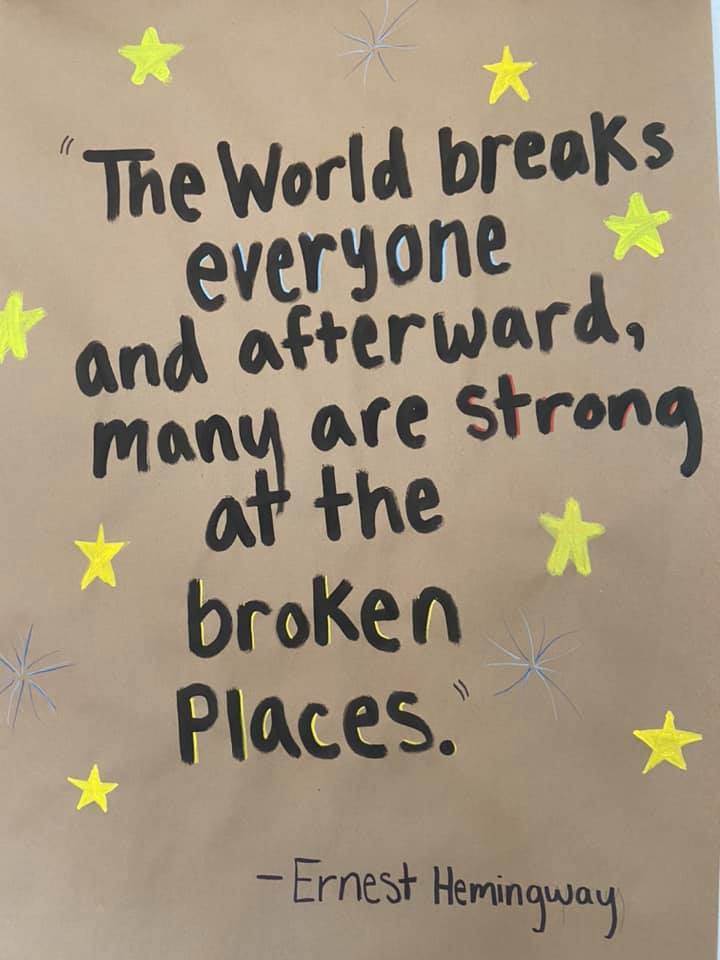 "The World breaks
everyone
and afterward,
many are strong
at the
broken
Places."
-Ernest Hemingway